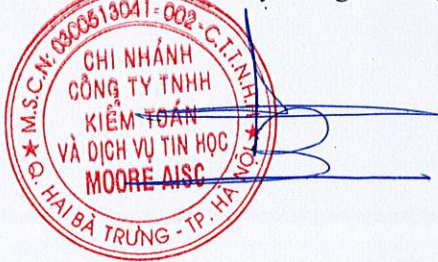 M.S.C.N: 0300513041-002-C.T.T.N.H.H
CHI NHÁNH
CÔNG TY TNHH
KIỂM TOÁN
VÀ DỊCH VỤ TIN HỌC
MOORE AISC
Q. HAI BÀ TRƯNG - TP. HÀ NỘI